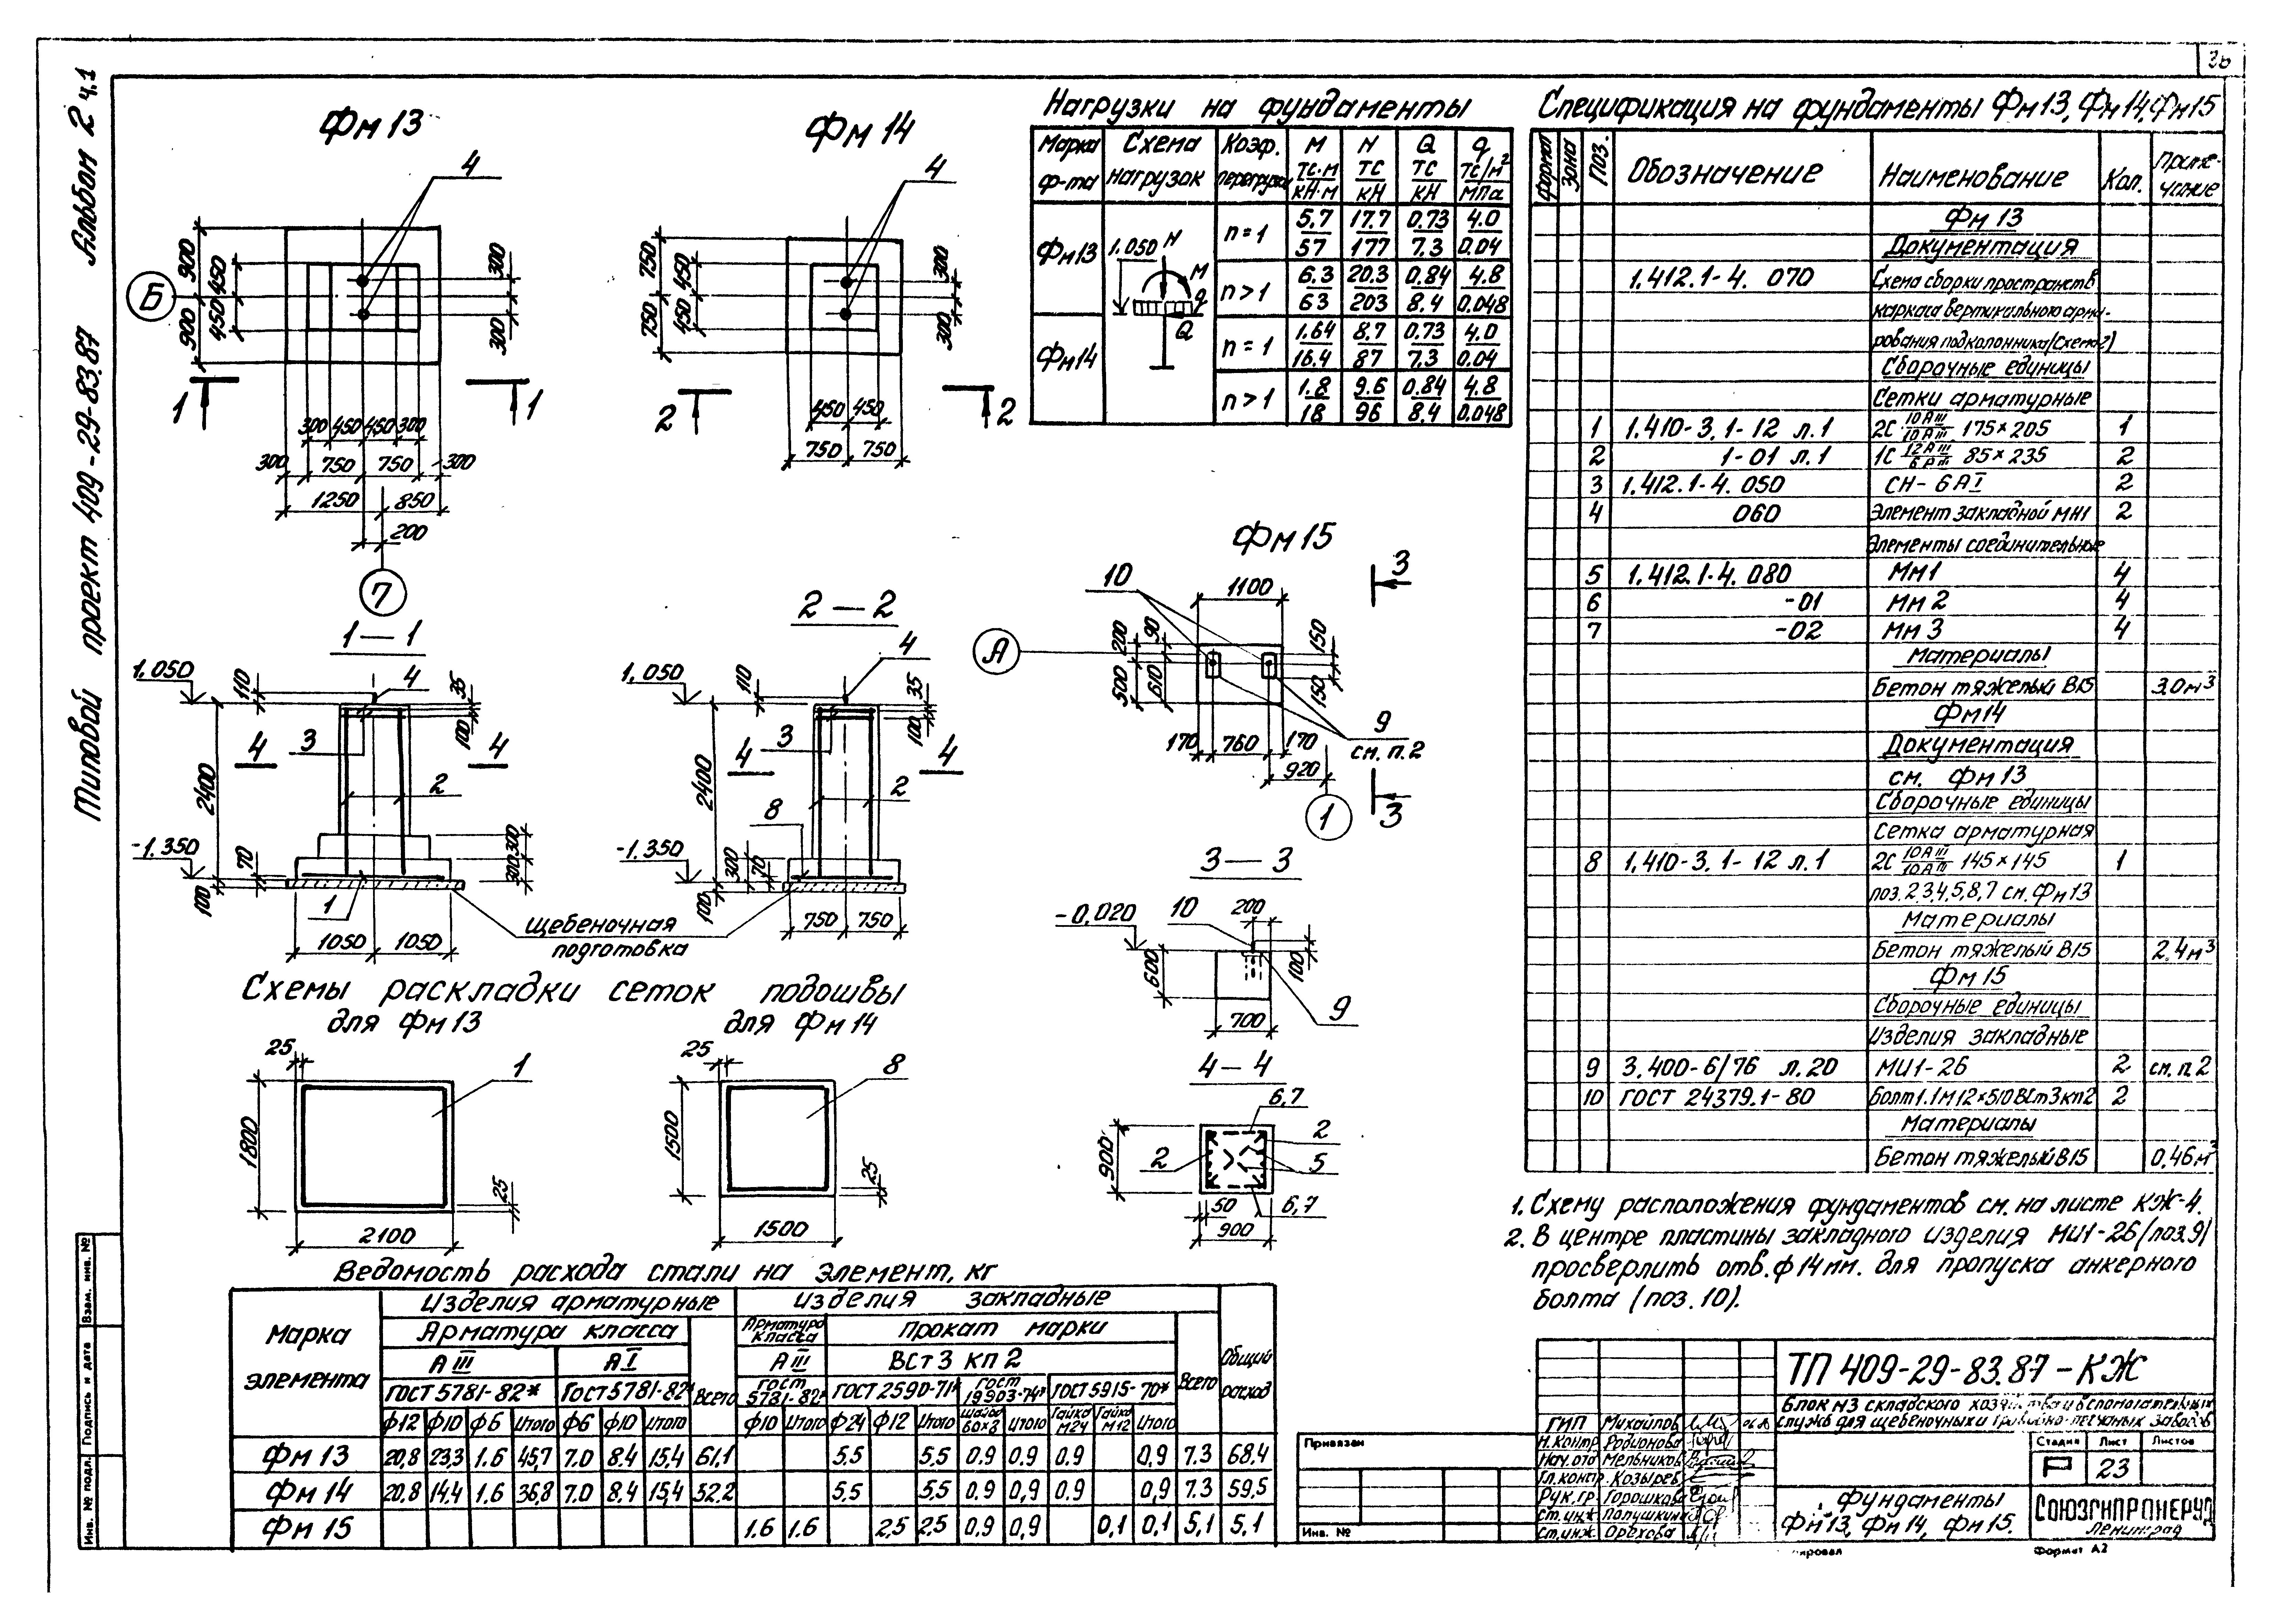 36
Альбом 2 ч.1
Типовой проект 409-29-83.87
Фм 13
4
900
450
450
900
300
300
Б
1
1
300 450 450 300
300 750 750 300
1250 850
200
7
Фм 14
4
750
450
450
750
300
300
2
2
450 450
750 750
Нагрузки на фундаменты
Марка ф-та
Схема нагрузок
Коэф. перегрузки
М тс·м кН·м
N тс кН
Q тс кН
q тс/м² мпа
Фм13
1.050 N M q Q
n = 1 5,7 17.7 0,73 4.0
57 177 7.3 0.04
n > 1 6.3 20.3 0.84 4.8
63 203 8.4 0.048
Фм14
n = 1 1.64 8,7 0.73 4.0
16.4 87 7.3 0.04
n > 1 1.8 9.6 0.84 4.8
18 96 8.4 0.048
Спецификация на фундаменты Фм13, Фм14, Фм15
Формат Зона Поз. Обозначение Наименование Кол. Приме-чание
Фм 13
Документация
1.412.1-4. 070 Схема сборки пространств
каркаса вертикального арми-
рования подколонника (схема 2)
Сборочные единицы
Сетки арматурные
1 1.410-3.1-12 л.1 2С 10АIII/10АIII 175×205 1
2 1-01 л.1 1С 12АIII/6РIII 85×235 2
3 1.412.1-4. 050 СН-6АI 2
4 060 Элемент закладной МН1 2
Элементы соединительные
5 1.412.1-4. 080 Мм1 4
6 -01 Мм 2 4
7 -02 Мм 3 4
Материалы
Бетон тяжелый В15 3.0 м³
Фм14
Документация
см. Фм 13
Сборочные единицы
Сетка арматурная
8 1.410-3.1-12 л.1 2С 10АIII/10АIII 145×145 1
поз. 2,3,4,5,6,7 см. Фм13
Материалы
Бетон тяжелый В15 2.4 м³
Фм 15
Сборочные единицы
Изделия закладные
9 3.400-6/76 л.20 МИ1-26 2 см. п.2
10 ГОСТ 24379.1-80 Болт 1.1 М12×510 ВСт3кп2 2
Материалы
Бетон тяжелый В15 0,46 м³
1 — 1
1,050
110
4
35
100
3
4
4
2400
2
-1.350
70
100
300
300
1
1050 1050
2 — 2
1,050
110
4
35
100
3
4
4
2400
8
2
-1.350
300
70
100
750 750
Щебеночная
подготовка
Фм 15
10
1100
3
А
200
90
500
610
150
150
9
см. п. 2
170 760 170
920
1
3
3 — 3
-0,020
10
200
600
100
700
9
4 — 4
6,7
2
2
5
900
50
900
6,7
Схемы раскладки сеток подошвы
для Фм 13
25
1
1800
25
2100
для Фм 14
25
8
1500
25
1500
Ведомость расхода стали на элемент, кг
Марка элемента
Изделия арматурные
Изделия закладные
Общий расход
Арматура класса
Всего
Арматура класса
Прокат марки
Всего
А III
А I
А III
ВСт 3 кп 2
ГОСТ 5781-82*
ГОСТ 5781-82*
ГОСТ 5781-82*
ГОСТ 2590-71*
ГОСТ 19903-74*
ГОСТ 5915-70*
ф12 ф10 ф6 Итого ф6 ф10 Итого ф10 Итого ф24 ф12 Итого Итого Гайка М24 Гайка М12 Итого
Фм 13 20,8 23,3 1.6 45,7 7.0 8.4 15,4 61,1 5.5 5.5 0.9 0.9 0.9 0,9 7.3 68,4
Фм 14 20,8 14,4 1.6 36,8 7.0 8.4 15,4 52,2 5.5 5.5 0.9 0,9 0.9 0,9 7.3 59,5
Фм 15 1.6 1.6 2,5 2,5 0,9 0,9 0,1 0,1 5,1 5,1
1. Схему расположения фундаментов см. на листе КЖ-4.
2. В центре пластины закладного изделия МИ1-26 (поз.9)
просверлить отв. ф 14 мм. для пропуска анкерного
болта (поз. 10).
Привязан
Инв. №
ТП 409-29-83.87 - КЖ
Блок №3 складского хозяйства и вспомогательных
служб для щебеночных и гравийно-песчаных заводов
ГИП Михайлов
Н.контр. Родионова
Нач. отд Мельников
Гл. констр. Козырев
Рук. гр. Горошкова
Ст. инж. Полушкин
Ст. инж. Орехова
Стадия Лист Листов
Р 23
Фундаменты
Фм 13, Фм 14, Фм 15.
СОЮЗГИПРОНЕРУД
Ленинград
Формат А2
Взам. инв. №
Подпись и дата
Инв. № подл.